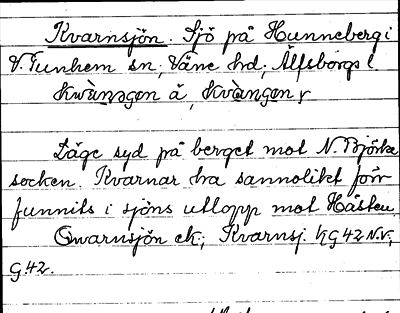 Kvarnsjön. Sjö på Hunneberg i
V. Tunhem sn, Väne hd, Älfsborgs l.
Läge syd på berget mot N. Björke
socken. Kvarnar ha sannolikt för
funnits i sjöns utlopp mot Hästen.
Qwarnsjön ek.; Kvarnsj. G 42 N.V.,
G. 42.